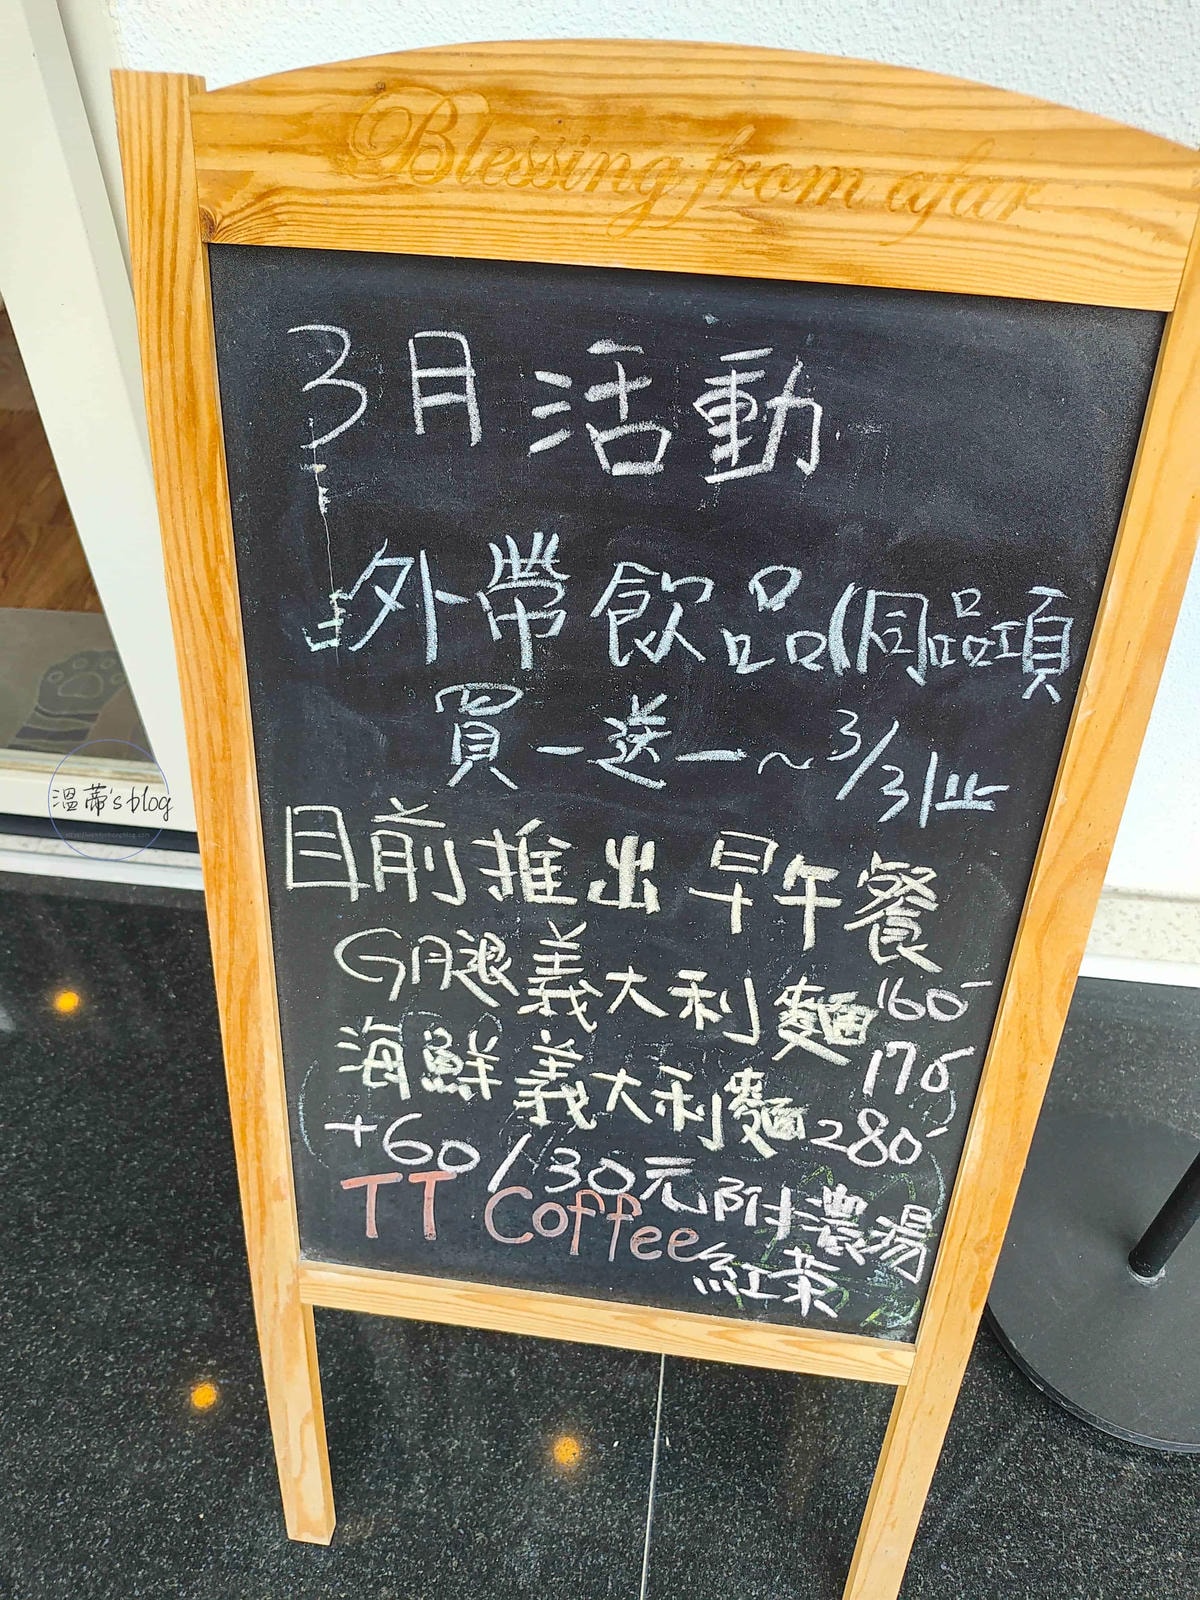 Blessing from afar
3月活動
外帶飲品(同品項
買一送一~3/31止
目前推出早午餐
G月腿義大利麵160
175
海鮮義大利麵280
+60/30元附濃湯
TT Coffee紅茶
溫蒂's blog